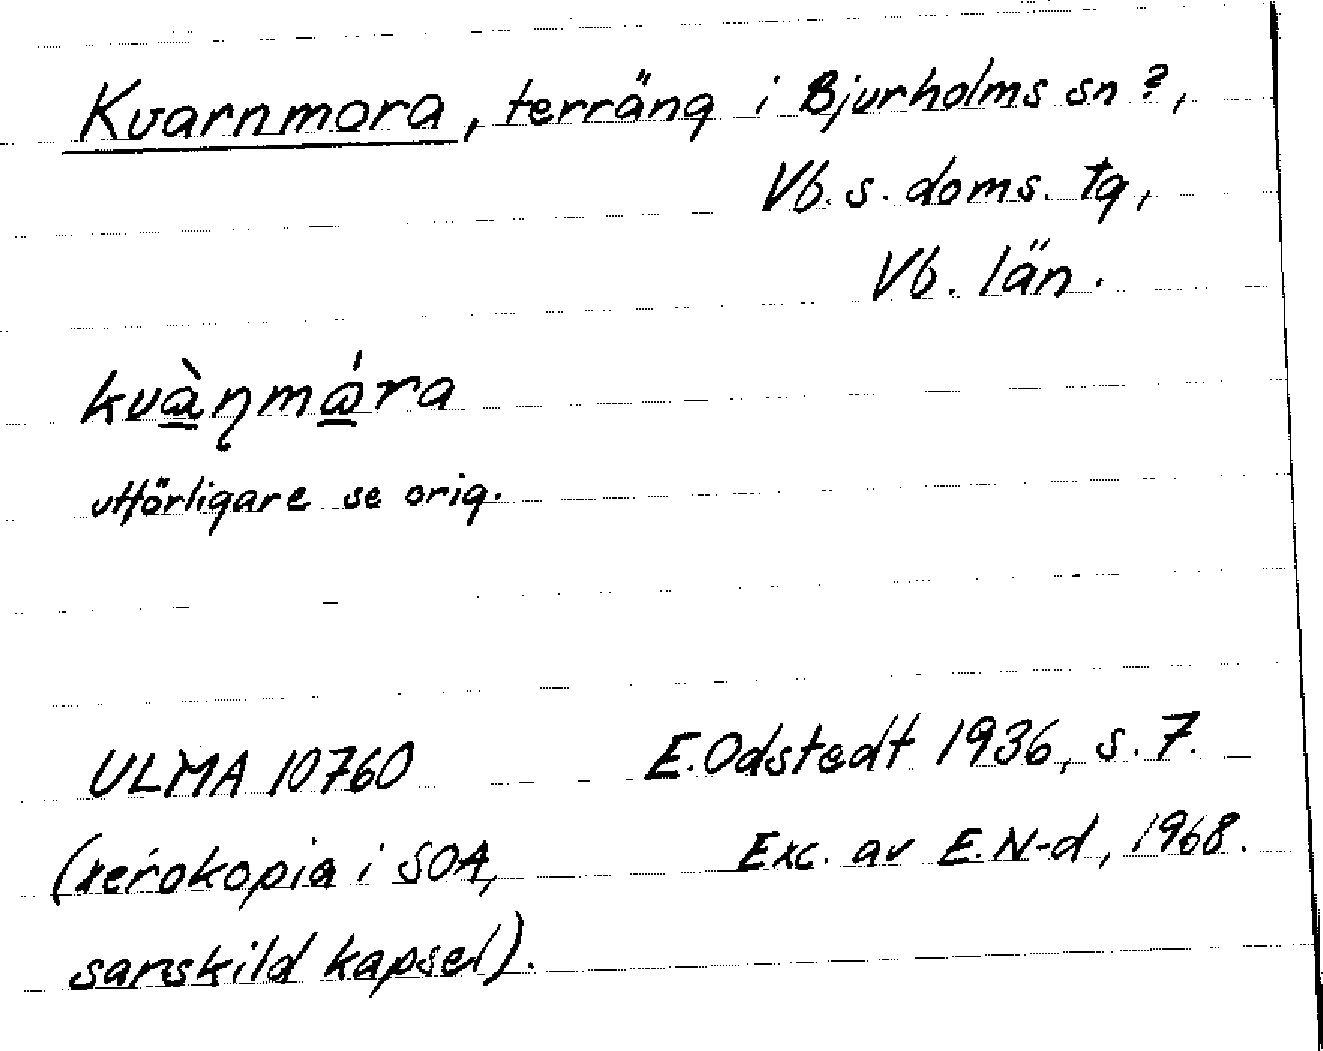 Kvarnmora, terräng i Bjurholms sn?,
Vb. s. doms. tg,
Vb. län.
kvàɳmára
utförligare se orig.
ULMA 10760 E. Odstedt 1936, s. 7.
(xerokopia i SOA, Exc. av E. N-d, 1968.
särskild kapsel).